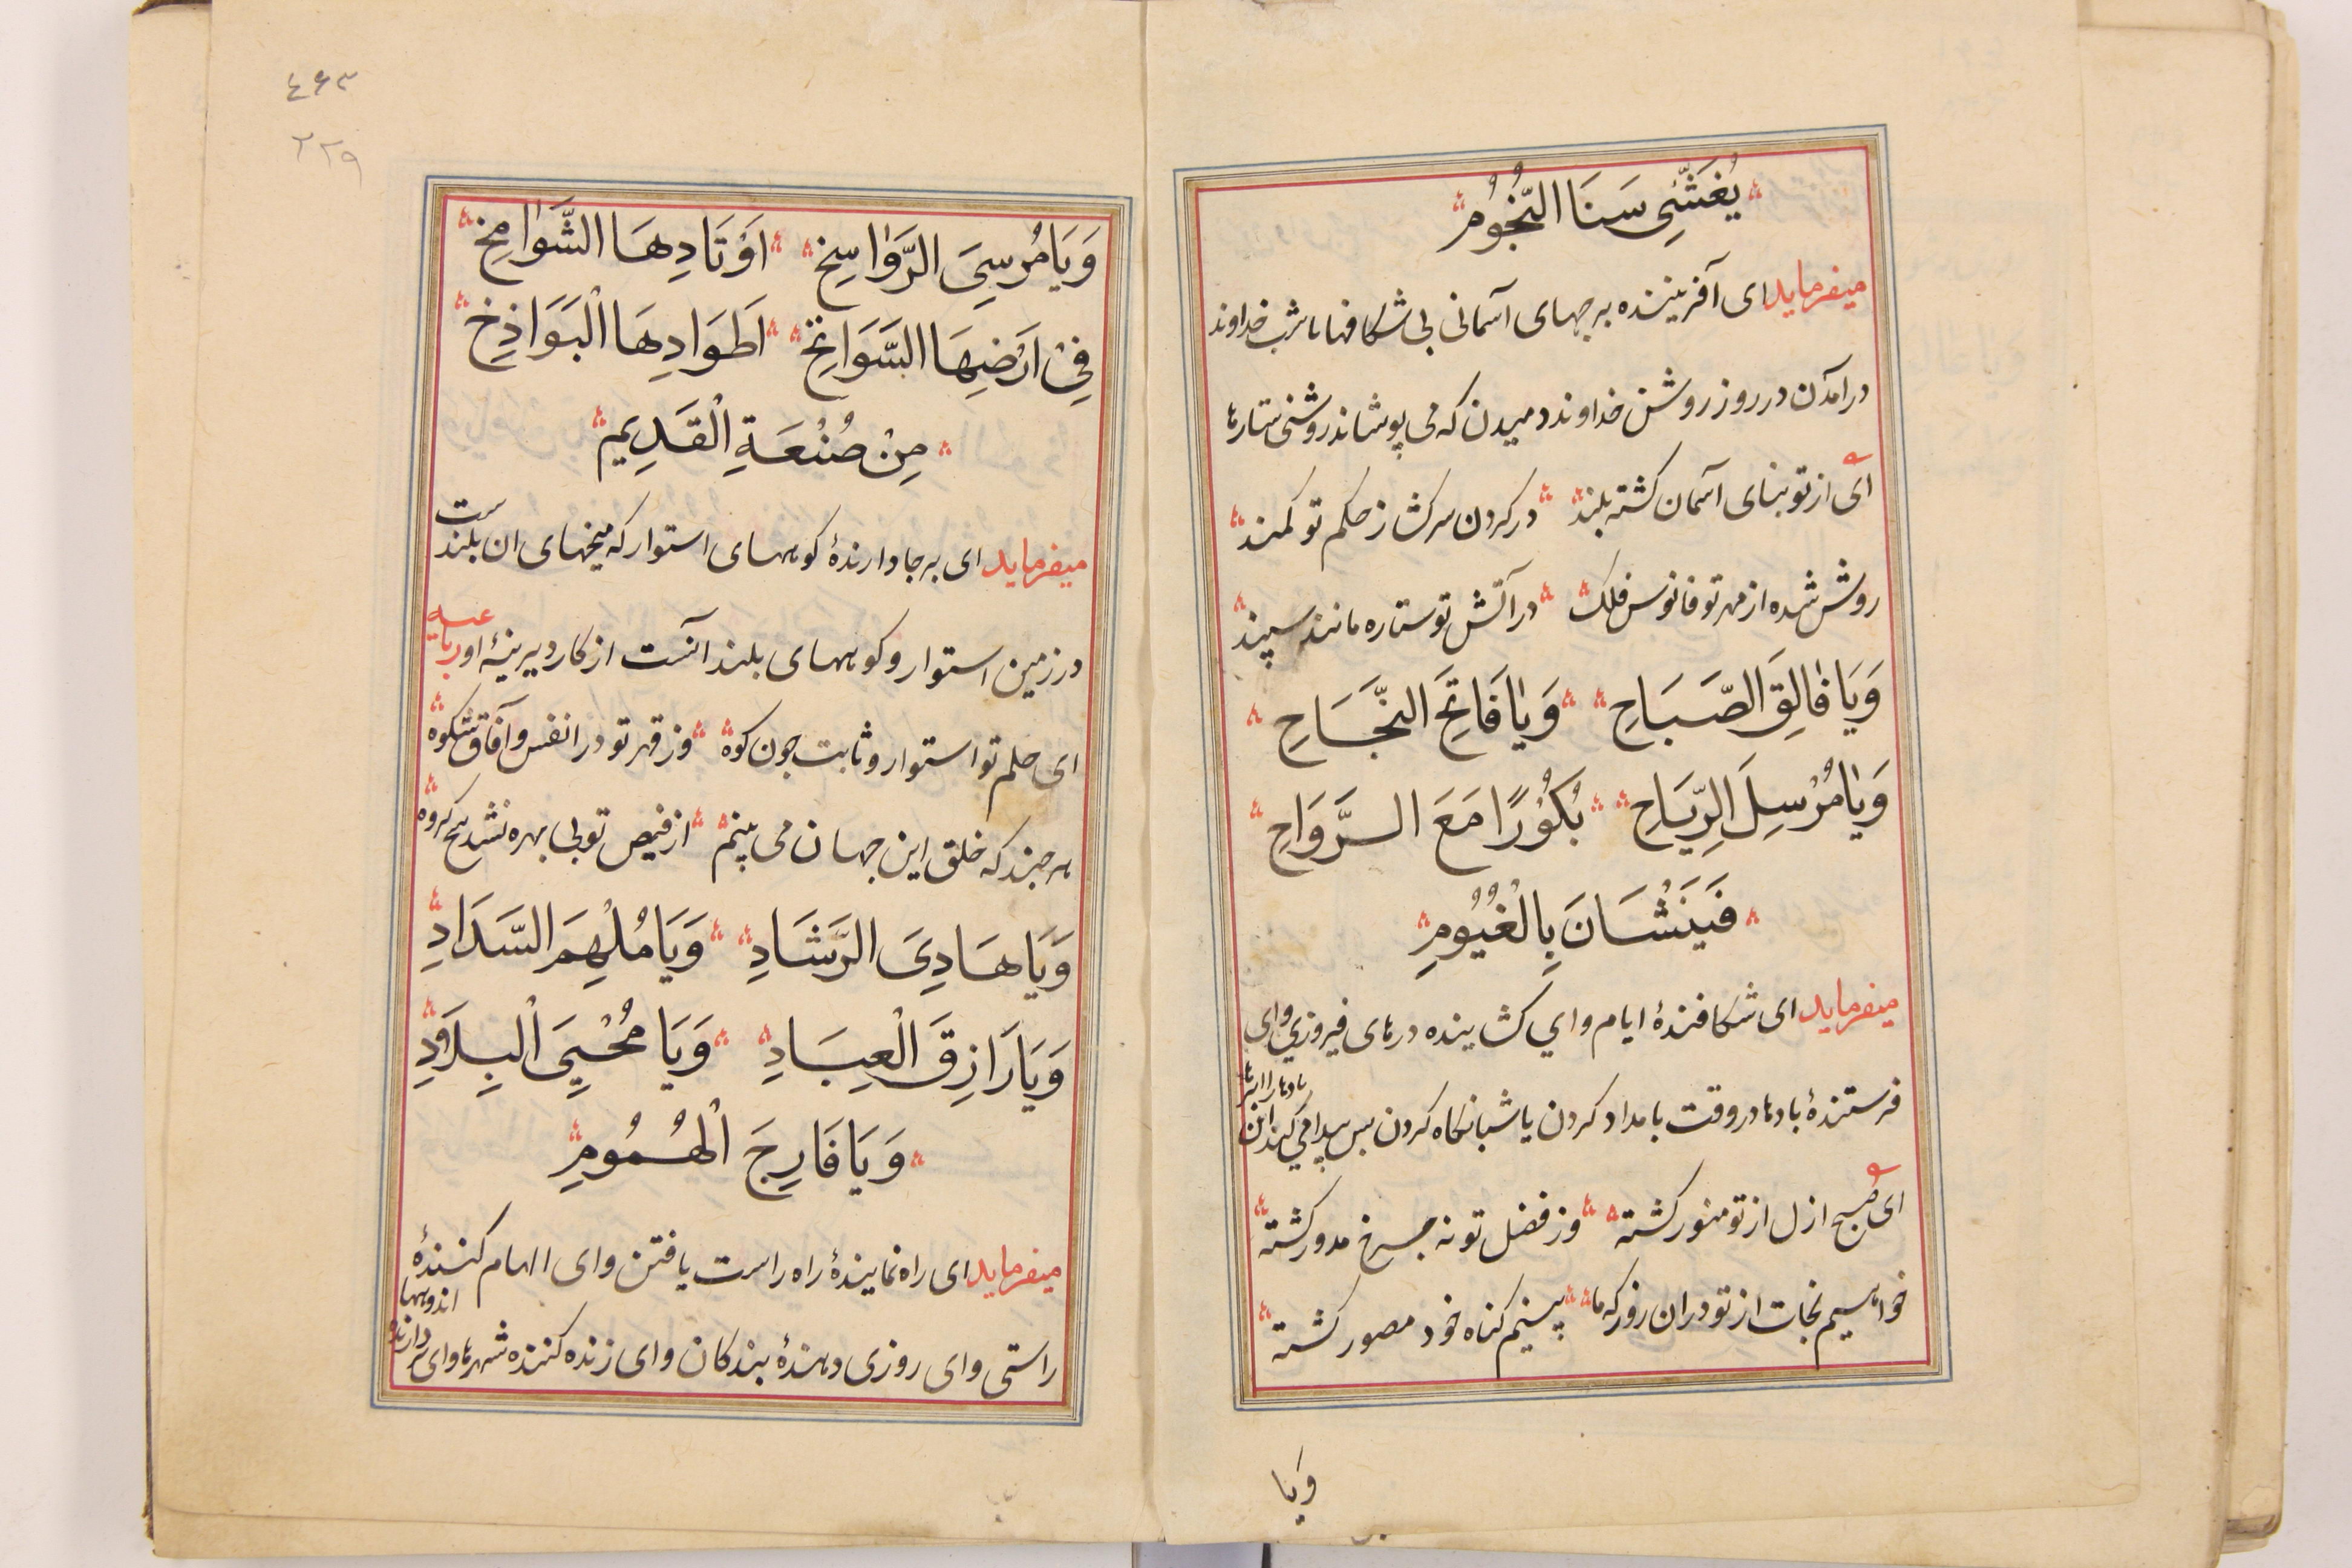 يُغَشّي سَنَا النُّجُومِ
میفرماید ای آفریننده برجهای آسمانی بی شکافها با شب خداوند
درامدن در روز روشن خداوند دمیدن که می پوشاند روشنی ستارها
ای از تو بنای آسمان کشته بلند درکردن سرکشان ز حکم تو کمند
روشن شده از مهر تو فانوس فلک در آتش تو ستاره مانند سپند
وَيَا فَالِقَ الصَّبَاحِ وَيَا فَاتِحَ النَّجَاحِ
وَيَا مُرْسِلَ الرِّيَاحِ بُكُورًا مَعَ الرَّوَاحِ
فَيَنْشَانَ بِالْغُيُومِ
میفرماید ای شکافندهٔ ایام وای کشاینده درهای فیروزی وای
فرستندهٔ بادها در وقت بامداد کردن یا شبانکاه کردن بس پیدا می کنند این
بادها ابرها
ای صبح ازل از تو منور کشته وز فضل تو نه چرخ مدور کشته
خواهیم نجات از تو دران روز که ما بینیم کناه خود مصور کشته
وَيا
٤۶۳
٢٢٩
وَيَا مُرْسِيَ الرَّوَاسِخِ اَوْتَادِهَا الشَّوَامِخِ
فِي اَرْضِهَا السَّوَانِحِ اَطْوَادِهَا الْبَوَاذِخِ
مِنْ صُنْعَةِ الْقَدِيمِ
میفرماید ای برجا دارندهٔ کوههای استوار که میخهای ان بلندست
در زمین استوار و کوههای بلند آنست از کار دیرینهٔ او رباعیه
ای حلم تو استوار و ثابت چون کوه وز قهر تو در انفس و آفاق شکوه
هر چند که خلق این جهان می بینم از فیض تو بی بهره نشد هیچ کروه
وَيَا هَادِيَ الرَّشَادِ وَيَا مُلْهِمَ السَّدَادِ
وَيَا رَازِقَ الْعِبَادِ وَيَا مُحْيِيَ الْبِلَادِ
وَيَا فَارِجَ الْهُمُومِ
میفرماید ای راه نمایندهٔ راه راست یافتن وای الهام کنندهٔ
راستی وای روزی دهندهٔ بندکان وای زنده کننده شهرها وای
اندوهها